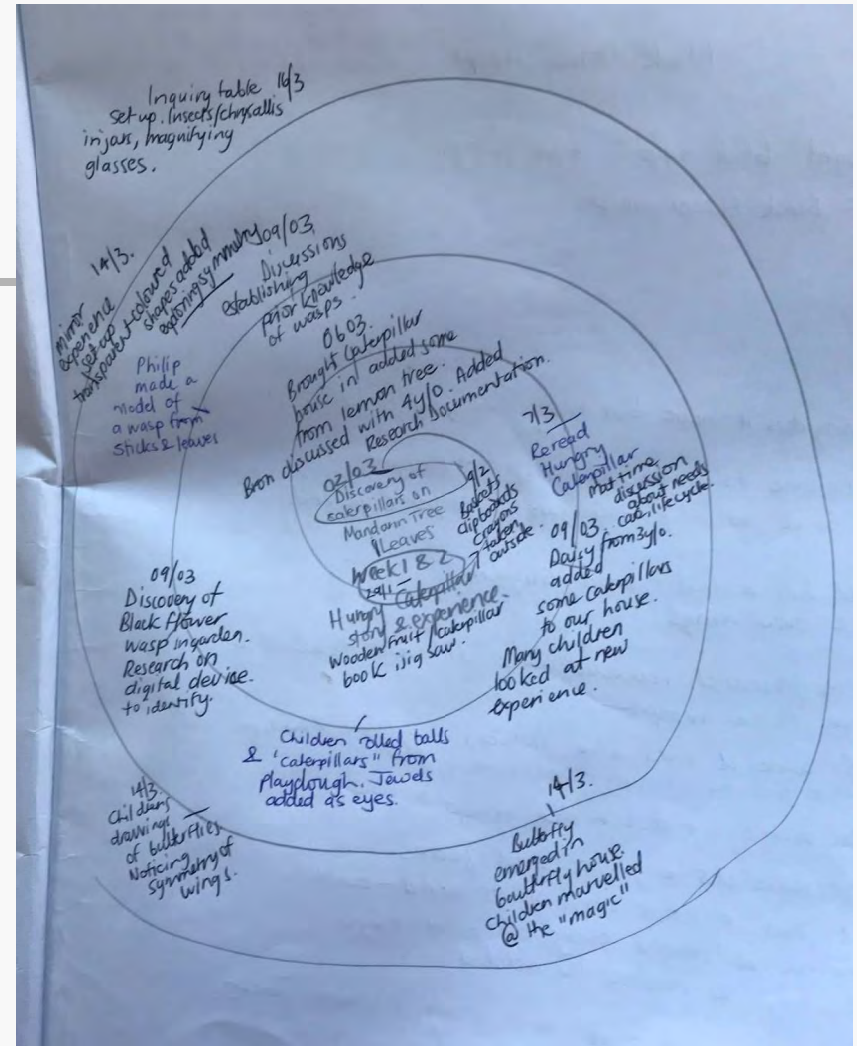 Inquiry table 16/3
set up. Insects/chrysallis
in jars, magnifying
glasses.
14/3.
mirror
experience
set up
transparent coloured
shapes added
exploring symmetry
09/03
Discussions
establishing
prior knowledge
of wasps.
Philip
made a
model of
a wasp from
sticks & leaves
0603.
Brought Caterpillar
house in/ added some
from lemon tree.
Bron discussed with 4y/o. Added
Research Documentation.
7/3
Reread
Hungry
Caterpillar
mat time
discussion
about needs
life cycle.
02/03
Discovery of
caterpillars on
Mandarin Tree
Leaves
9/2
Baskets
clipboards
Crayons
taken
outside.
Week 1 & 2
29/1
Hungry Caterpillar
story & experience.
Wooden fruit/caterpillar
book jig saw.
09/03.
Daisy from 3y/o.
added
some caterpillars
to our house.
Many children
looked at new
experience.
09/03
Discovery of
Black flower
wasp in garden.
Research on
digital device.
to identify.
Children rolled balls
& "caterpillars" from
Playdough. Jewels
added as eyes.
14/3.
Childrens
drawings
of butterflies
Noticing
symmetry of
wings.
14/3.
Butterfly
emerged in
butterfly house.
Children marvelled
@ the "magic"